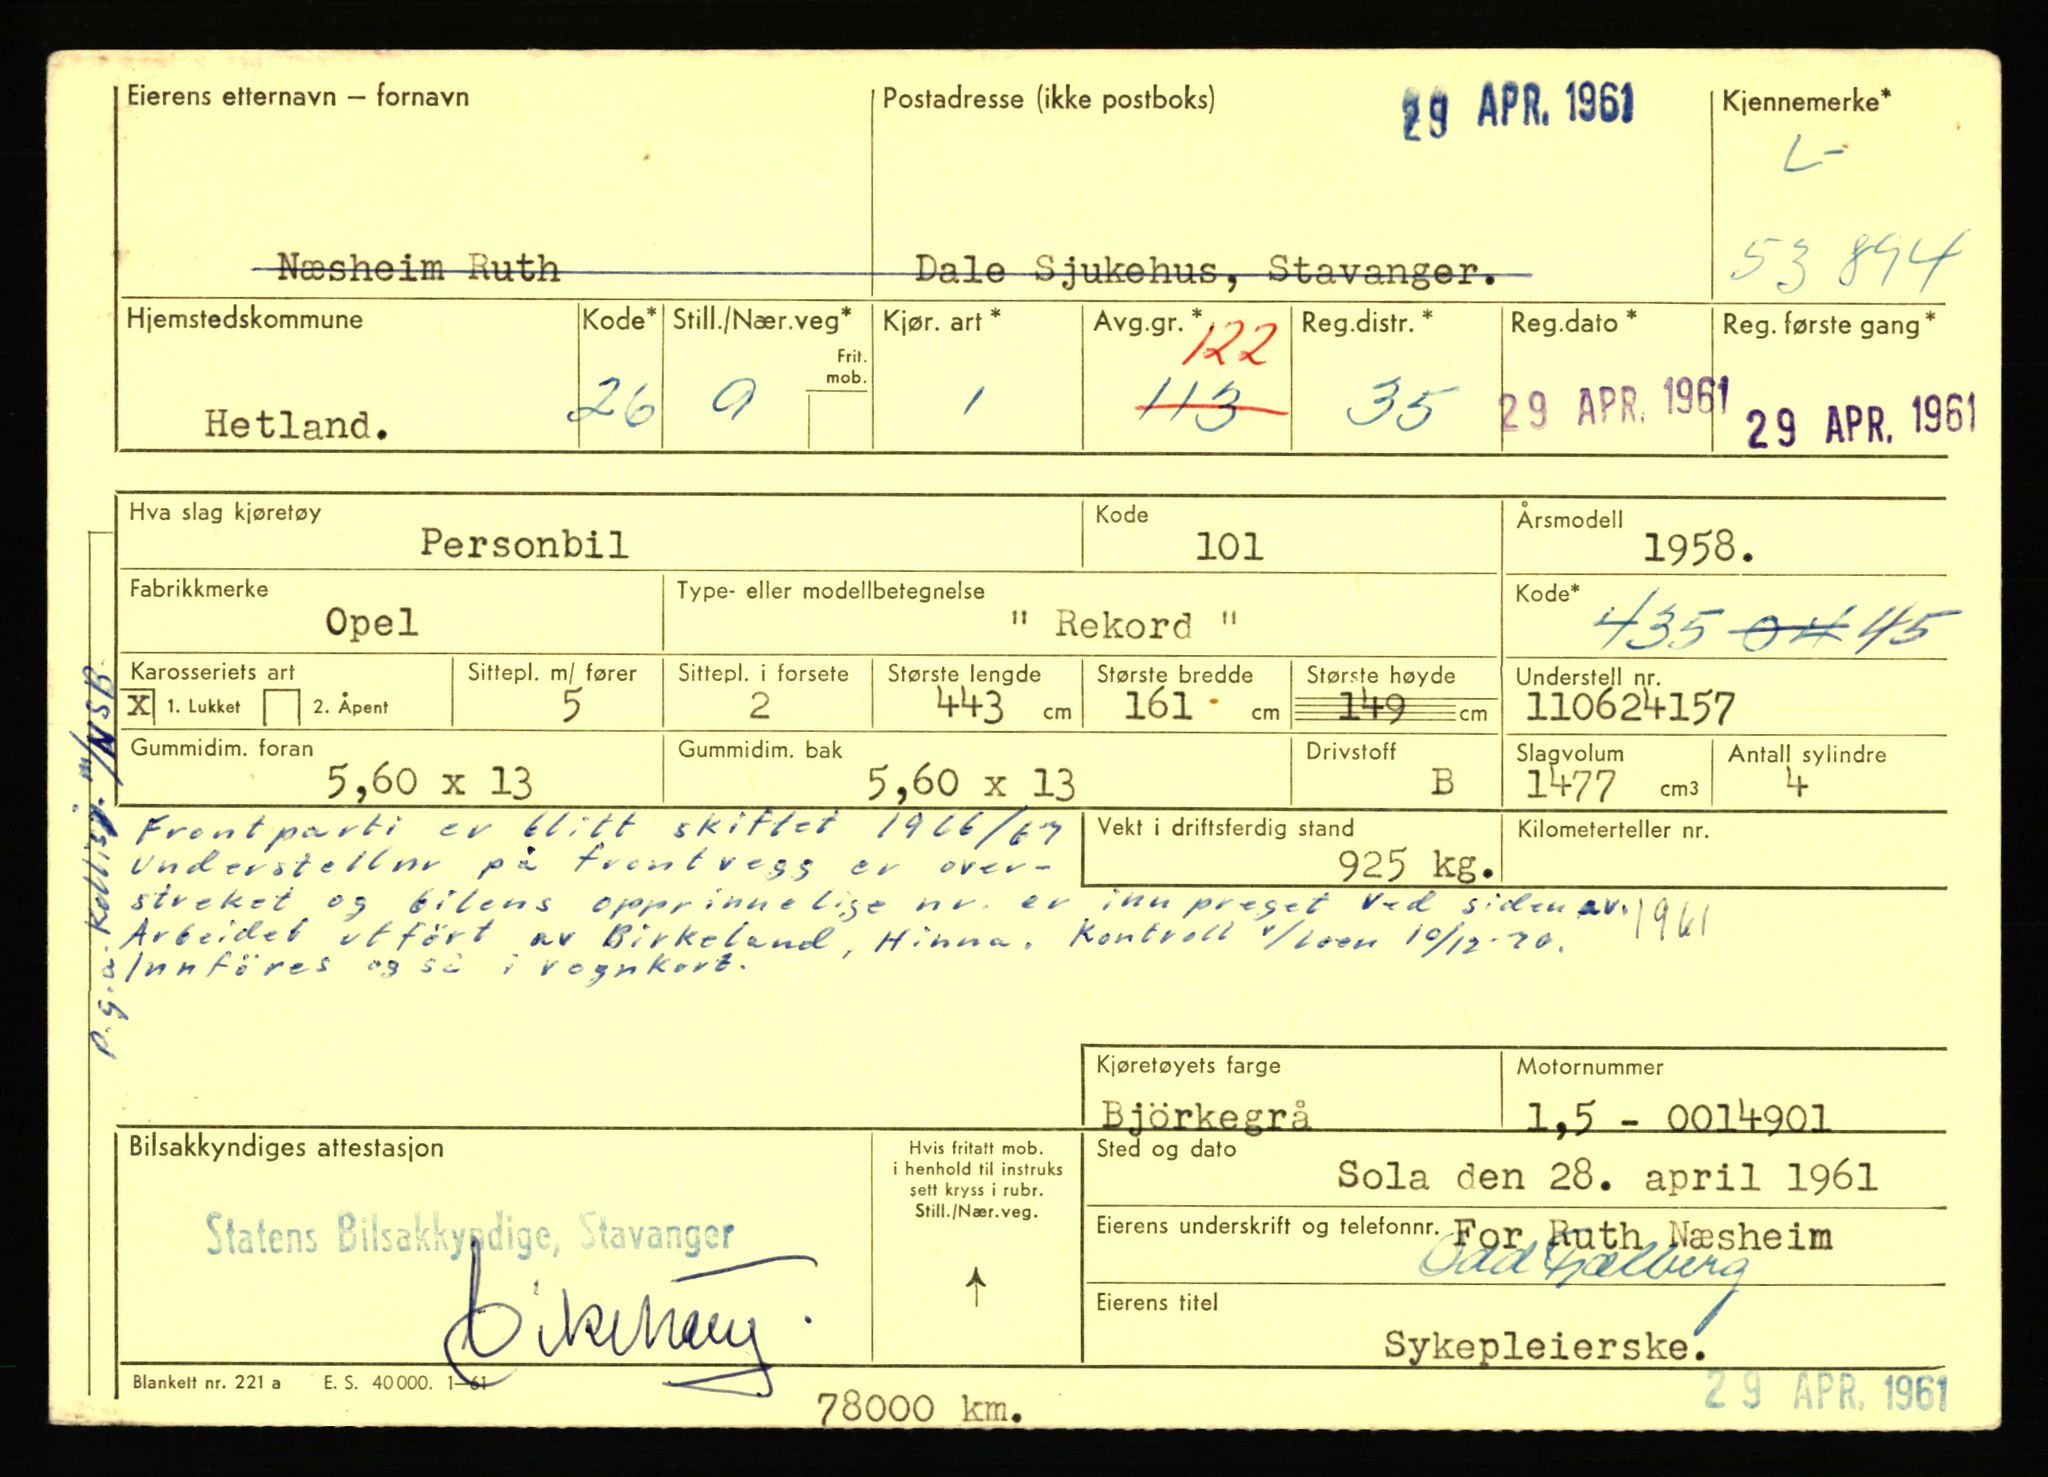 Eierens etternavn — fornavn
Postadresse (ikke postboks)
29 APR. 1961
Kjennemerke*
L-
53 894
Næsheim Ruth
Dale Sjukehus, Stavanger.
Hjemstedskommune
Hetland.
Kode*
26
Still./Nær.veg*
9
Frit. mob.
Kjør. art *
1
Avg.gr. *
122
113
Reg.distr. *
35
Reg.dato *
29 APR. 1961
Reg. første gang *
29 APR. 1961
Hva slag kjøretøy
Personbil
Kode
101
Årsmodell
1958.
Fabrikkmerke
Opel
Type- eller modellbetegnelse
" Rekord "
Kode*
435 04 45
Karosseriets art
X 1. Lukket 2. Åpent
Sittepl. m/ fører
5
Sittepl. i forsete
2
Største lengde
443 cm
Største bredde
161 cm
Største høyde
149 cm
Understell nr.
110624157
Gummidim. foran
5,60 x 13
Gummidim. bak
5,60 x 13
Drivstoff
B
Slagvolum
1477 cm3
Antall sylindre
4
p.g.a. Kollisj. m/NSB
Frontparti er blitt skiftet 1966/67
Understellnr på frontvegg er over-
streket og bilens opprinnelige nr. er innpreget ved siden av.
Arbeidet utført av Birkeland, Hinna. Kontroll v/Loen 10/12-70.
Innføres også i vognkort.
1961
Vekt i driftsferdig stand
925 kg.
Kilometerteller nr.
Kjøretøyets farge
Björkegrå
Motornummer
1,5 - 0014901
Bilsakkyndiges attestasjon
Statens Bilsakkyndige, Stavanger
Hvis fritatt mob.
i henhold til instruks
sett kryss i rubr.
Still./Nær.veg.
Sted og dato
Sola den 28. april 1961
Eierens underskrift og telefonnr.
For Ruth Næsheim
Eierens titel
Sykepleierske.
Blankett nr. 221 a E. S. 40 000. 1—61
78000 km.
29 APR. 1961